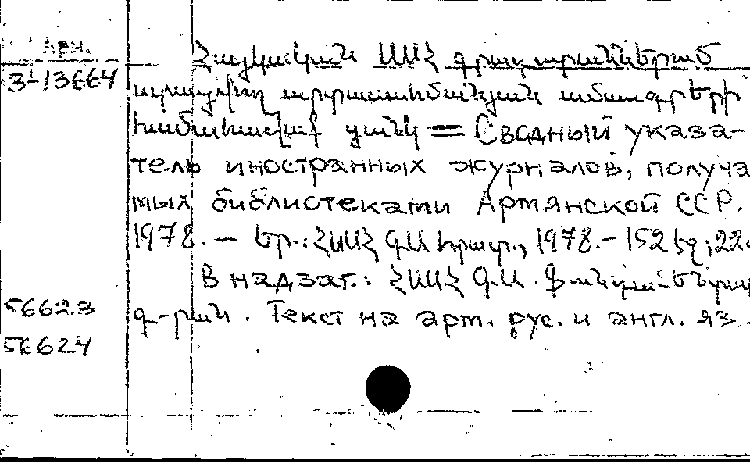 Арм.
3-13664
Հայկական ՍՍՀ գրադարաններում
ստացվող արտասահմանյան ամսագրերի
համահավաք ցանկ = Сводный указа-
тель иностранных журналов, получа
мых библиотеками Армянской ССР.
1978. – Եր.: ՀՍՍՀ ԳԱ հրատ., 1978.– 152 էջ; 22
В надзаг.: ՀՍՍՀ ԳԱ.
56623 գ-րան. Текст на арм. рус. и англ. яз.
56624